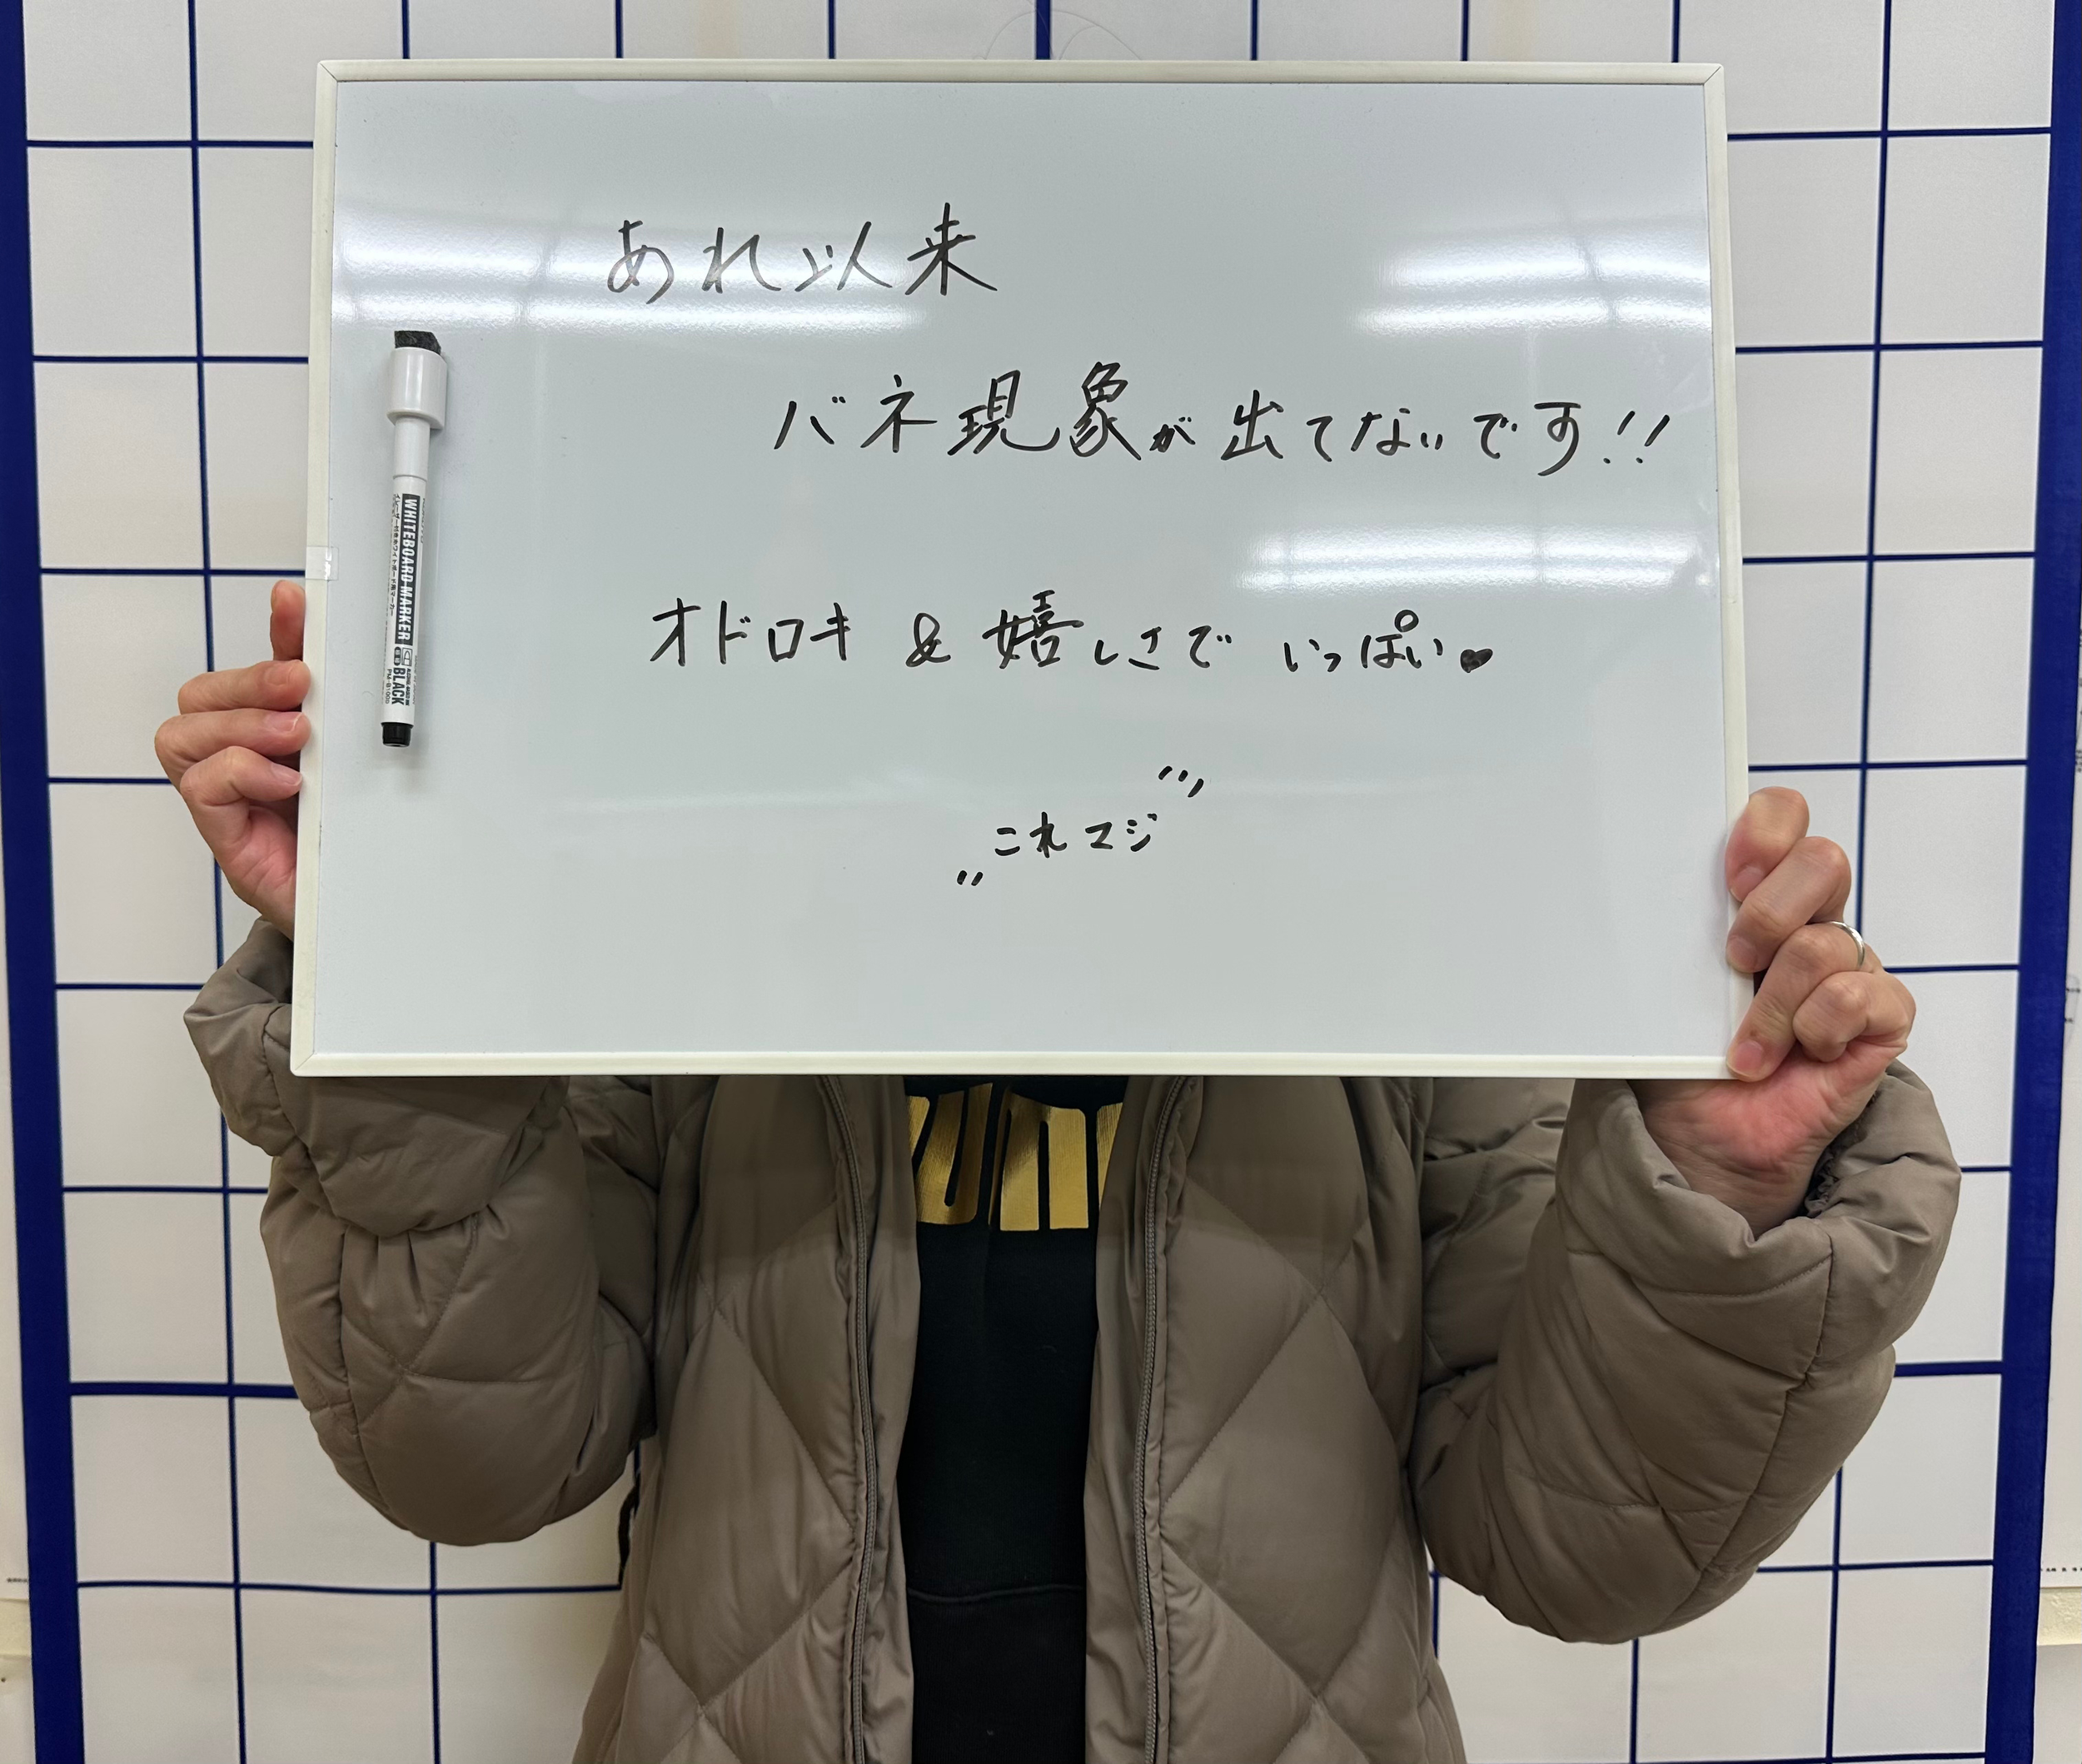 あれ以来
バネ現象が出てないです!!
オドロキ & 嬉しさで いっぱい♥
"これマジ"
WHITEBOARD MARKER BLACK